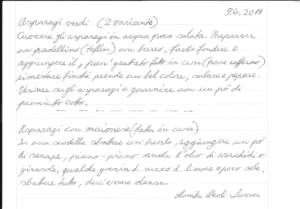 9.6.2019
Asparagi verdi (2 variante)
Cuocere gli asparagi in acqua poco salata. Preparare
un pradellino (Teflon) con burro, farlo fondere e
aggiungere il pan' grattato fatto in casa (pane raffermo)
rimestare finché prende un bel colore, salare e pepare.
Versare sugli asparagi e guarnire con un pò di
prosciutto cotto.
Asparagi con maionese (fatta in casa)
In una scodella sbattere un tuorlo, aggiungere un pò
di senape, piano-piano anche l'olio di arachidi o
girasole, qualche goccia d. succo d. limone e poco sale,
sbattere tutto, dev'essere densa.